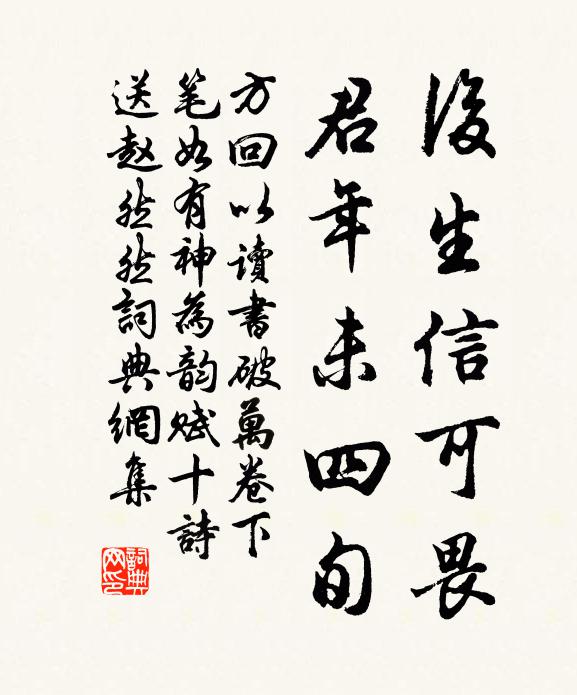 後生信可畏
君年未四旬
方回以讀書破萬卷下
笔如有神為韵賦十詩
送赵然然詞典網集
詞典網印